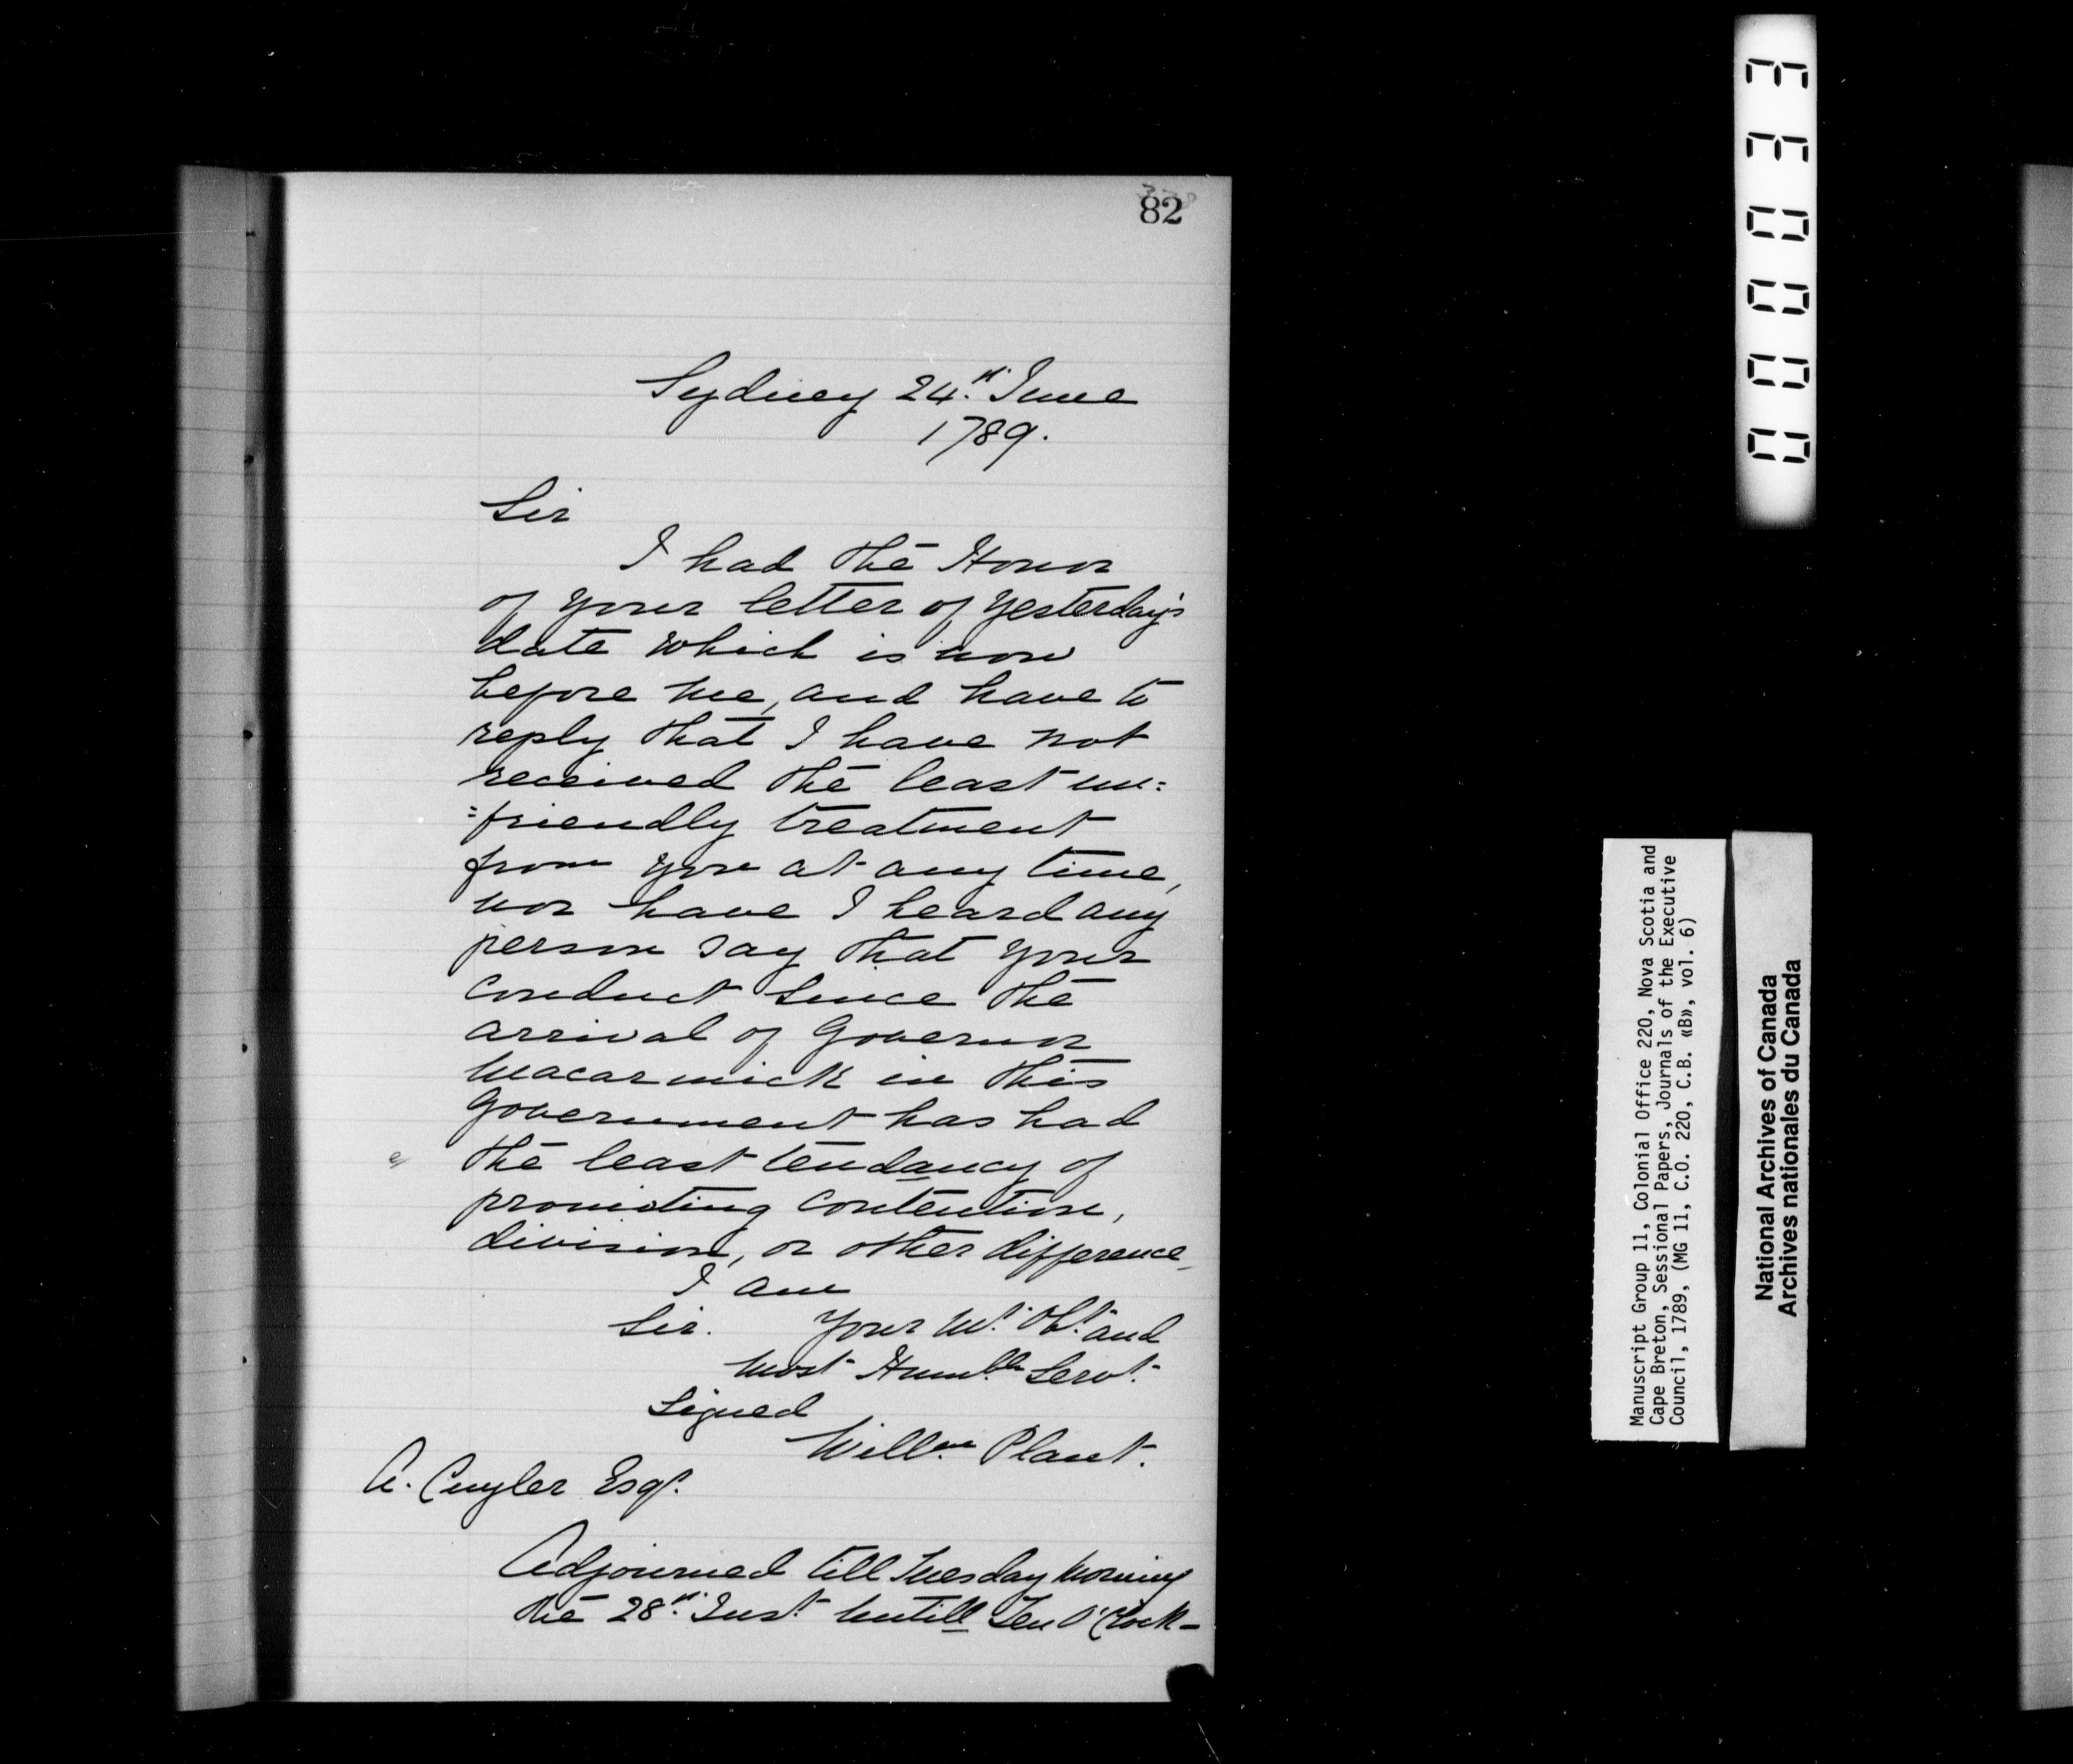 82
Sydney 24th June
1789.
Sir
I had the Honor
of your letter of yesterday's
date which is now
before me, and have to
reply that I have not
received the least un=
=friendly treatment
from you at any time,
nor have I heard any
person say that your
conduct since the
arrival of Governor
Macarmick in this
Government has had
the least tendancy of
promoting contention,
division, or other difference,
I am
Sir. Your Mt. Obt. and
most Humble Servt.
Signed
Willm. Plant.
A. Cuyler Esqr.
Adjourned till Tuesday Morning
the 28th. Inst. untill Ten O'Clock—
e/
000033
Manuscript Group 11, Colonial Office 220, Nova Scotia and
Cape Breton, Sessional Papers, Journals of the Executive
Council, 1789, (MG 11, C.O. 220, C.B. «B», vol. 6)
National Archives of Canada
Archives nationales du Canada